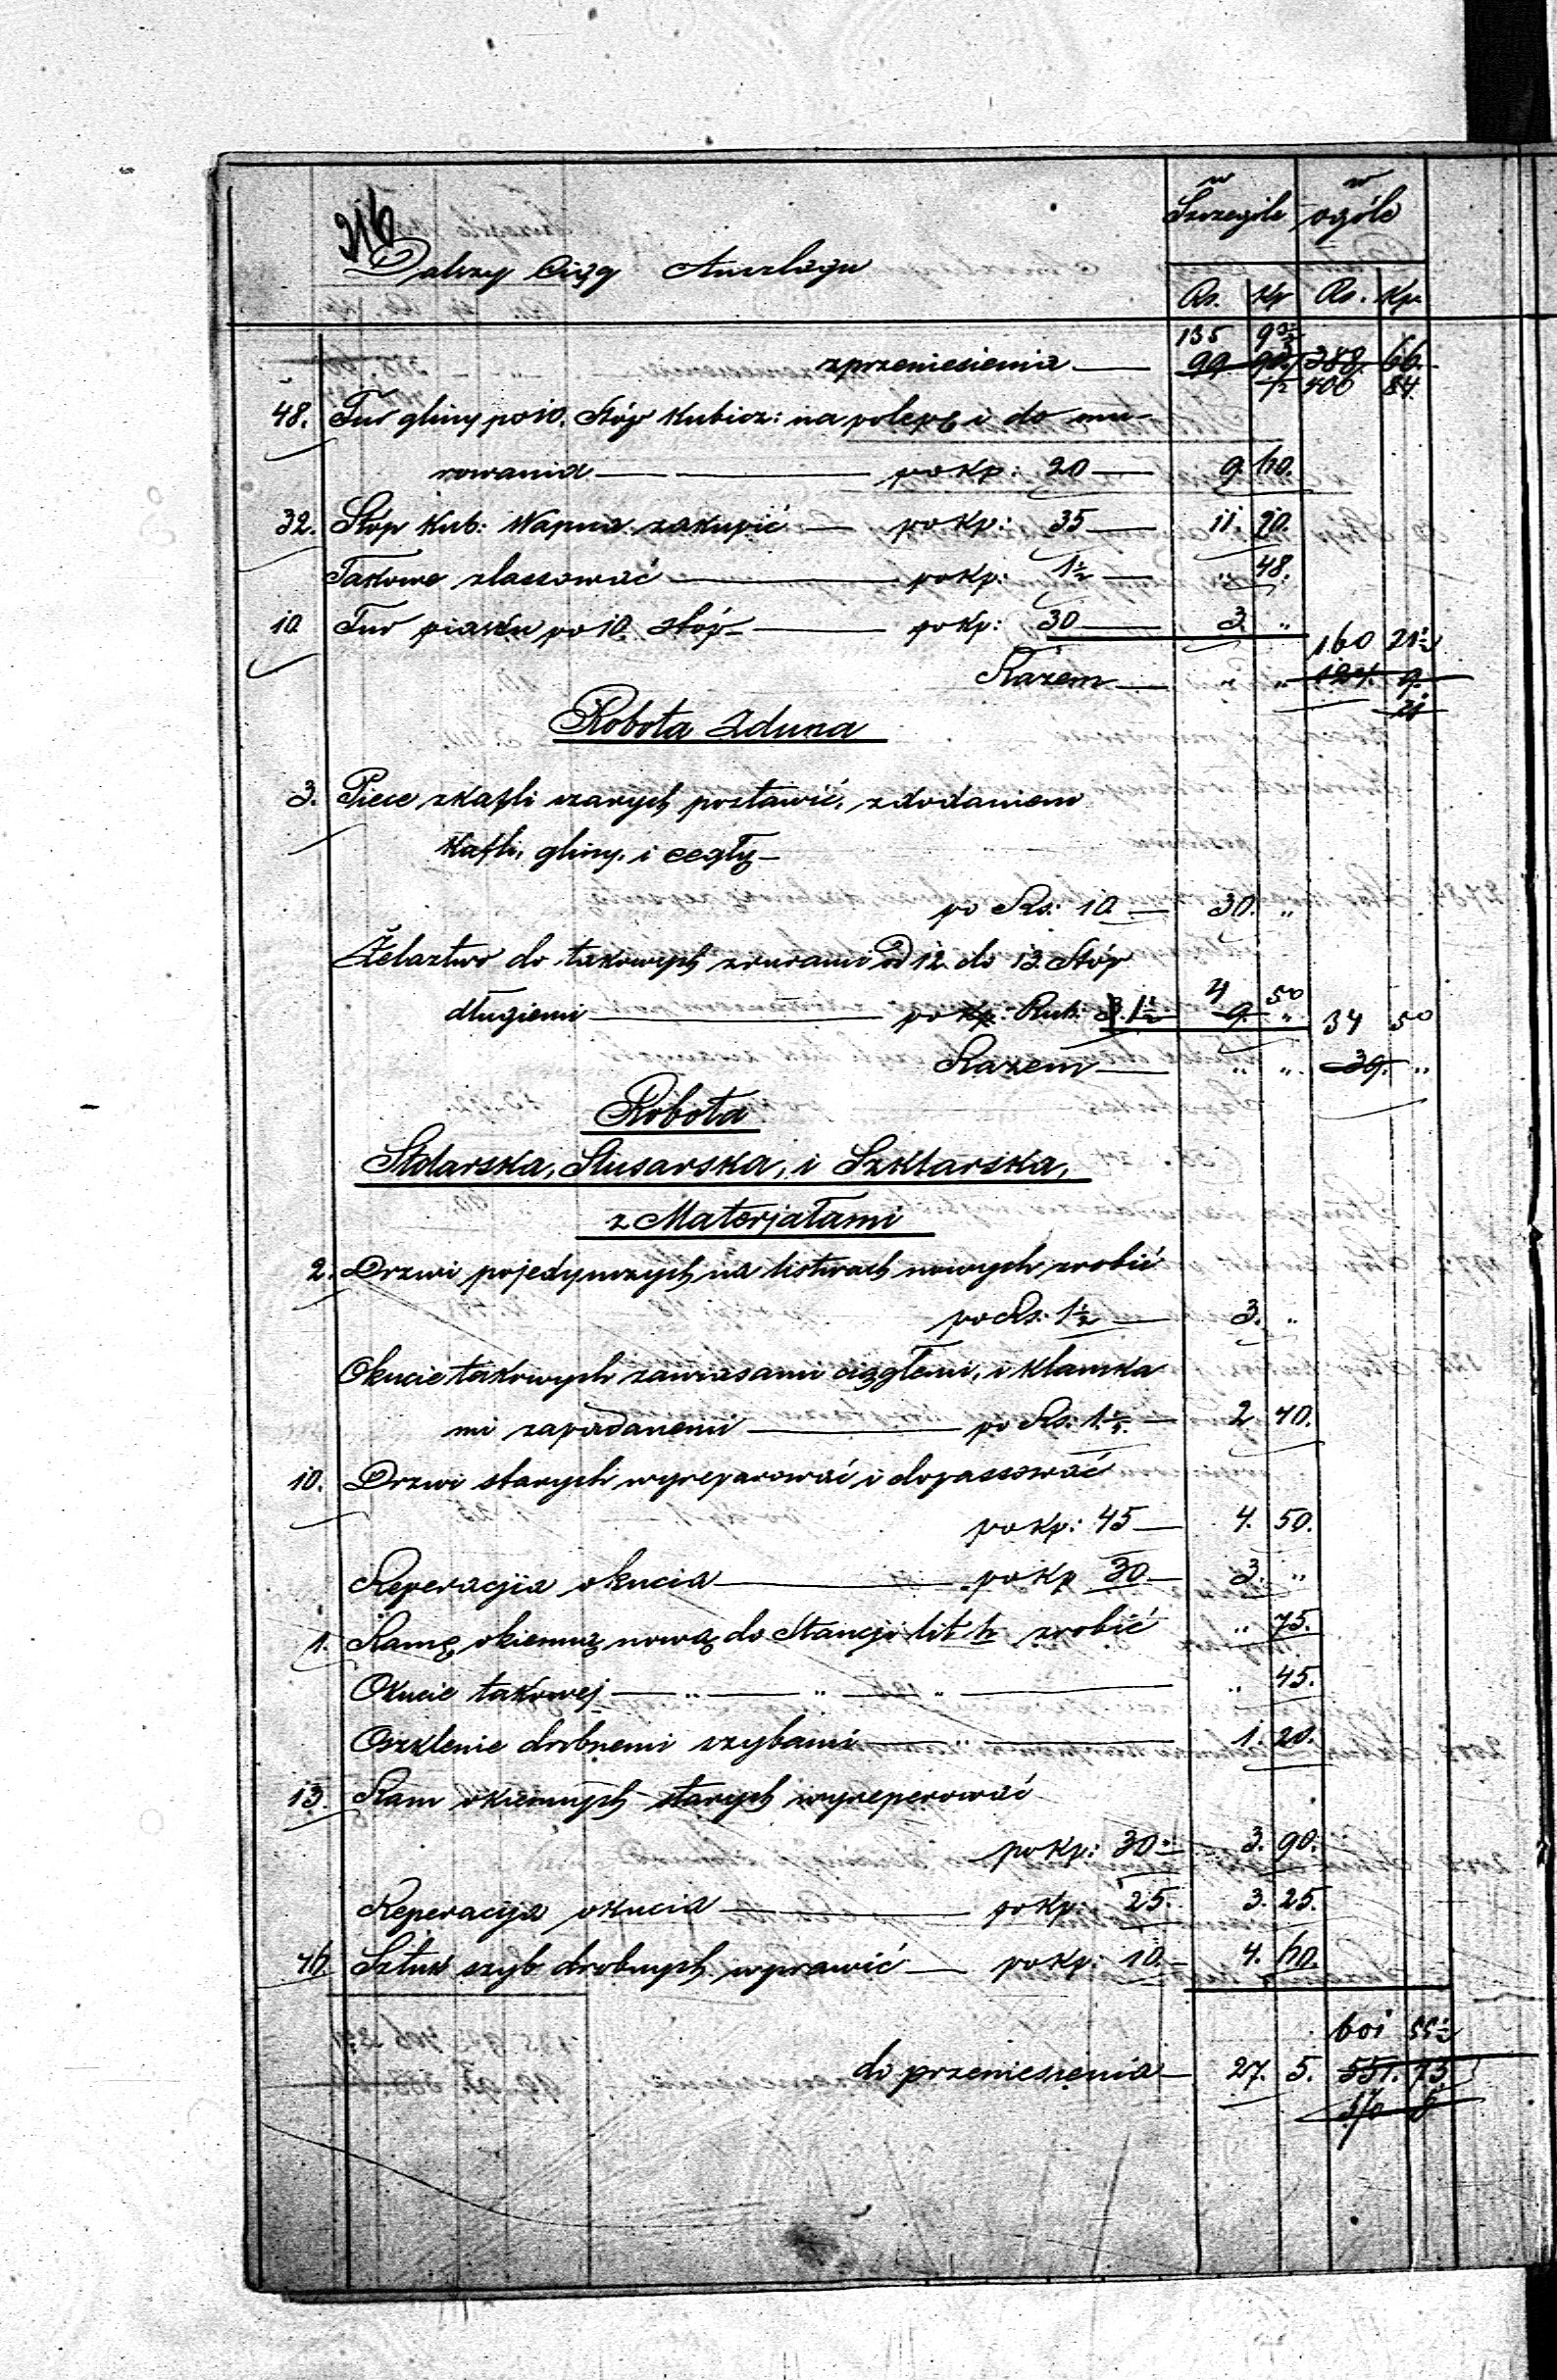 w w
216 Szczególe ogóle
Dalszy Ciąg Anszlagu
Rs. Kp Rs. Kp.
135 9½
z przeniesienia — 99 90½ 388. 66.
406 84
48. Fur gliny po 10. Stóp Kubicz: na polepę i do mu-
rowania — po Kp: 20 — 9. 60.
32. Stóp Kub: Wapna zakupić — po Kp: 35 — 11. 20.
Takowe zlassować — po Kp: 1½ — „ 48.
10 Fur piasku po 10. stóp — po Kp: 30 — 3. „
160 21½
Razem — „ „ 124. 9.
21
Robota Zduna
3. Piece z kafli szarych postawić, z dodaniem
Kafli, gliny, i cegły —
po Rs: 10. — 30. „
Żelaztwo do takowych z rurami od 12. do 13. Stóp
4 50
długiemi — po Kp: Rub: 3. 1½ 9. „ 34 50
Razem — „ „ 39. „
Robota
Stolarska, Slusarska, i Szklarska,
z Materjałami
2. Drzwi pojedynczych na listwach nowych zrobić
po Rs: 1½ — 3. „
Okucie takowych zawiasami ciągłemi, i klamka
mi zapadanemi — po Rs: 1.⅕. — 2. 40.
10. Drzwi starych wyreparować i dopassować
po Kp: 45 — 4. 50.
Reperacyja okucia — po Kp 30 — 3. „
1. Ramę okienną nową do Stancji lit h zrobić „ 75.
Okucie takowej — „ — „ — „ — „ 45.
Oszklenie drobnemi szybami — „ — 1. 20.
13. Ram okiennych starych wyreperować
po Kp: 30 — 3. 90.
Reperacija okucia — po Kp: 25. 3. 25.
46. Sztuk szyb drobnych wprawić — po Kp: 10. — 4. 60.
601 55½
do przeniesienia — 27. 5. 551. 75
570 8